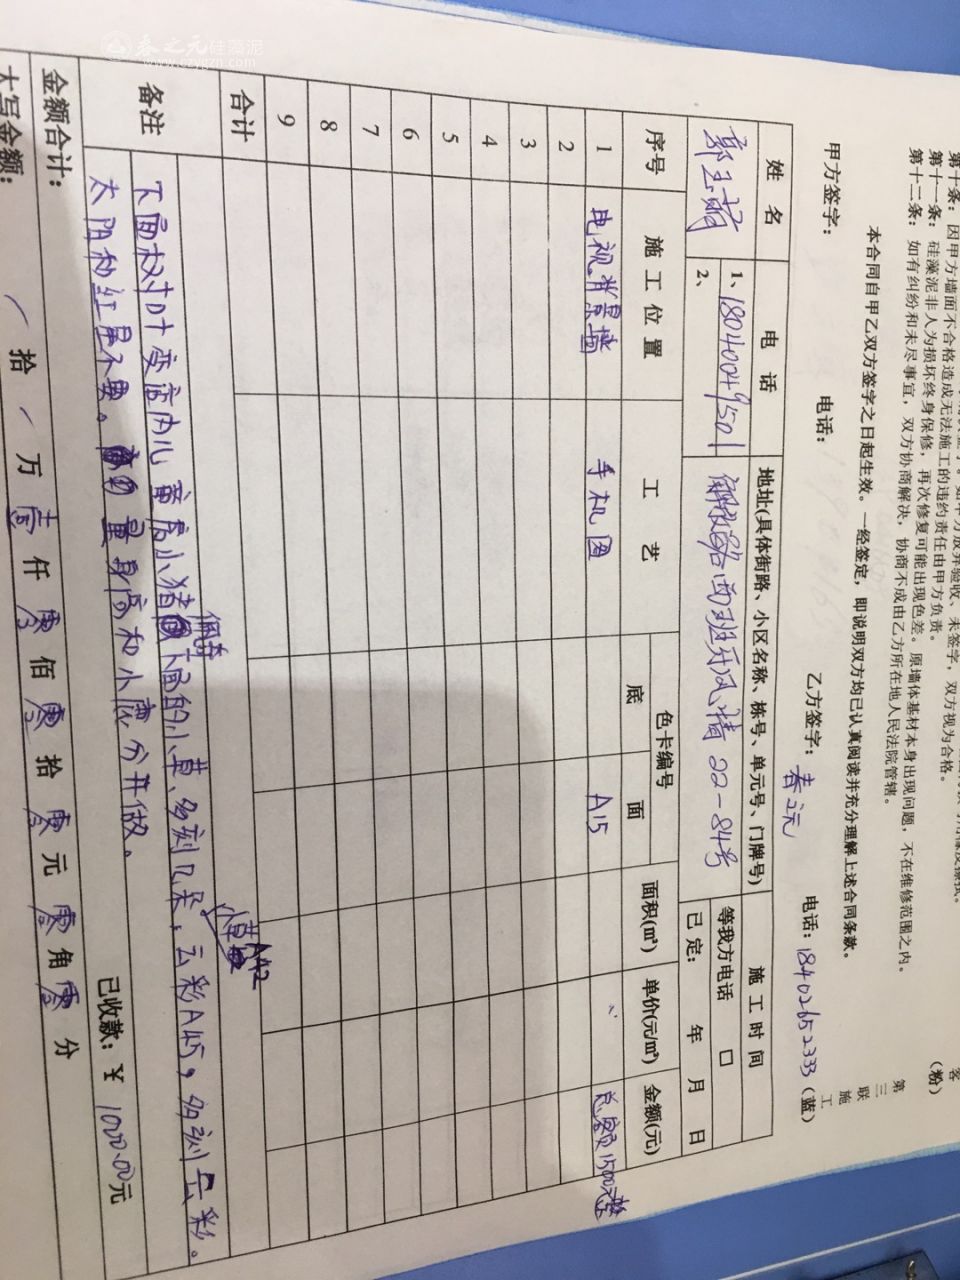 春之元硅藻泥
www.czygzn.com
第十条：因甲方墙面不合格造成无法施工的违约责任由甲方负责。
第十一条：硅藻泥非人为损坏终身保修，再次修复可能出现色差。原墙体基材本身出现问题，不在维修范围之内。
第十二条：如有纠纷和未尽事宜，双方协商解决，协商不成由乙方所在地人民法院管辖。
本合同自甲乙双方签字之日起生效。一经签定，即说明双方均已认真阅读并充分理解上述合同条款。
甲方签字： 电话： 乙方签字：春之元 电话：18402652333
客（粉）
第三联施工（蓝）
姓名 电话 地址(具体街路、小区名称、栋号、单元号、门牌号) 施工时间
1、18040049501 解放路西班牙风情22-84号 等我方电话 □
2、 已定： 年 月 日
序号 施工位置 工艺 色卡编号 面积(㎡) 单价(元/㎡) 金额(元)
底 面
1 电视背景墙 手机图 A15 总额1500元整
2
3
4
5
6
7
8
9
合计
小草A42
备注 下面树叶变宽内儿 童房小猪佩奇下面的小草、多刻几朵，云彩A45，多刻云彩。
太阳粉红是不要。量身高和小 分开做。
金额合计： 已收款：¥ 1000.00元
大写金额： 拾 万 壹 仟 零 佰 零 拾 零 元 零 角 零 分